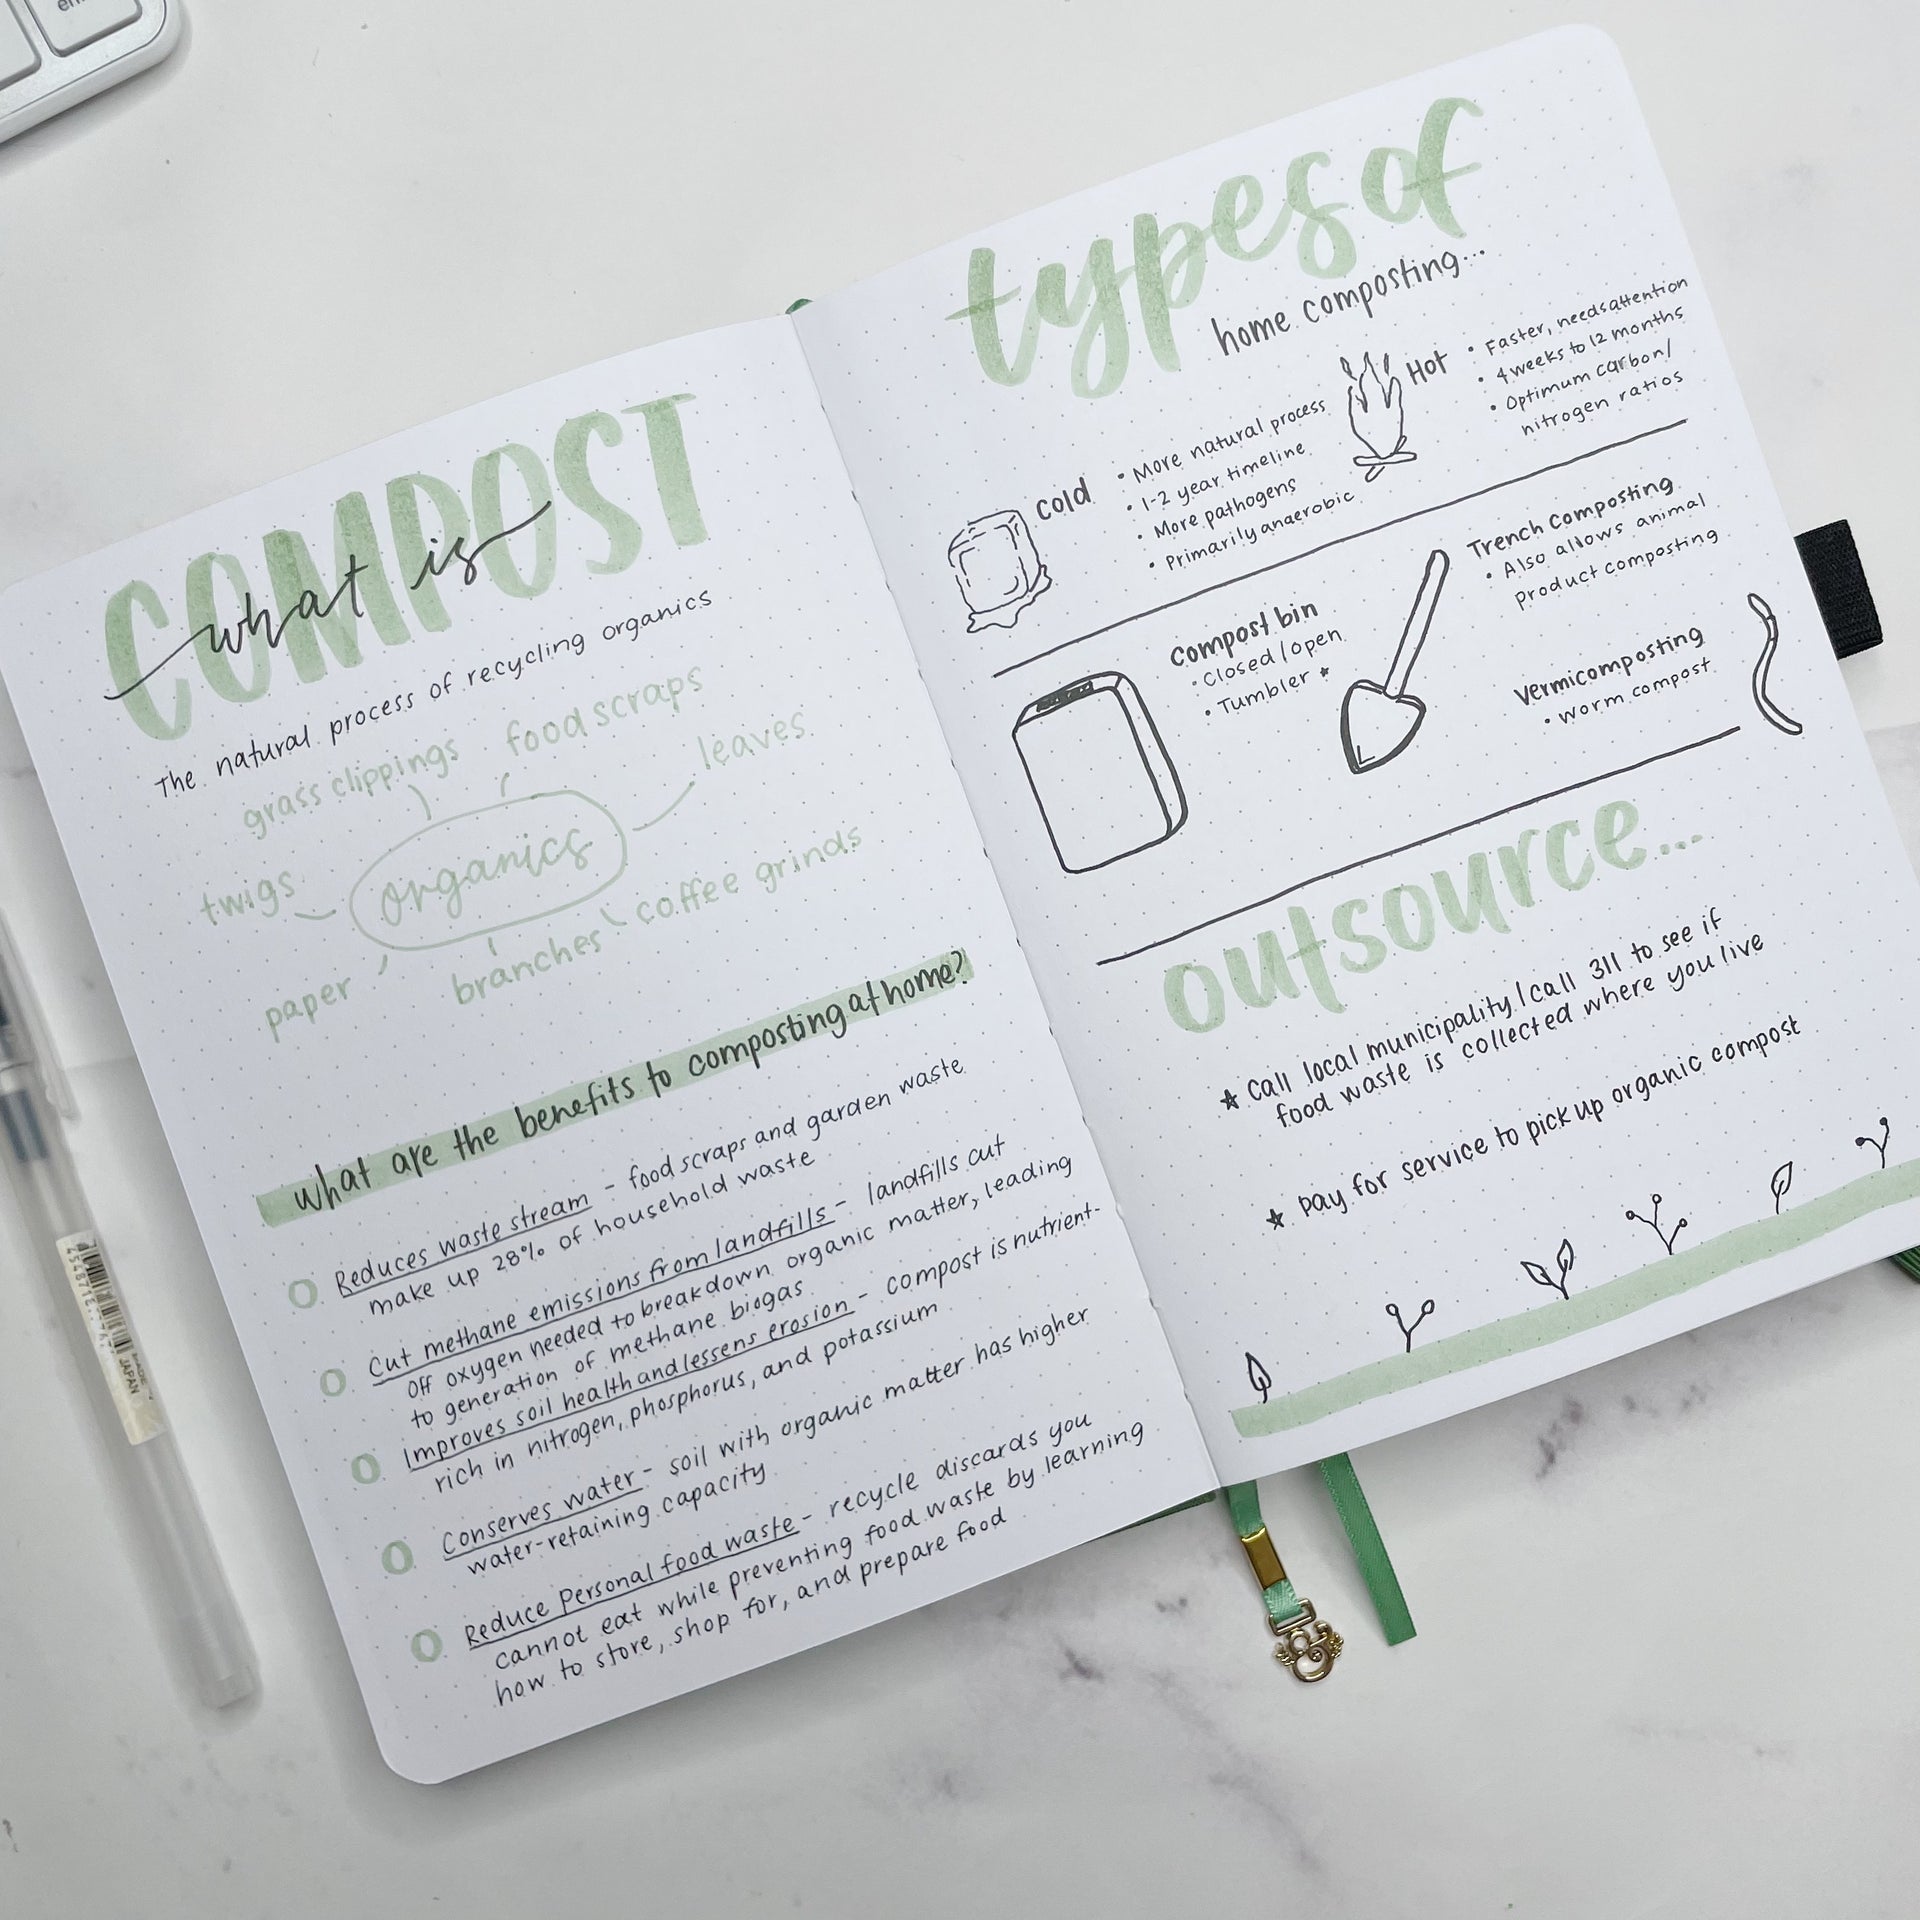 COMPOST
what is
The natural process of recycling organics
grass clippings
food scraps
leaves
twigs
organics
coffee grinds
paper
branches
what are the benefits to composting at home?
Reduces waste stream - food scraps and garden waste
make up 28% of household waste
Cut methane emissions from landfills - landfills cut
off oxygen needed to breakdown organic matter, leading
to generation of methane biogas
Improves soil health and lessens erosion - compost is nutrient-
rich in nitrogen, phosphorus, and potassium
Conserves water - soil with organic matter has higher
water-retaining capacity
Reduce Personal food waste - recycle discards you
cannot eat while preventing food waste by learning
how to store, shop for, and prepare food
types of
home composting...
cold
• More natural process
• 1-2 year timeline
• More pathogens
• Primarily anaerobic
Hot
• Faster, needs attention
• 4 weeks to 12 months
• Optimum carbon/
nitrogen ratios
compost bin
• Closed/open
• Tumbler ★
Trench composting
• Also allows animal
product composting
Vermicomposting
• worm compost
outsource...
★ call local municipality/call 311 to see if
food waste is collected where you live
★ pay for service to pick up organic compost
JAPAN